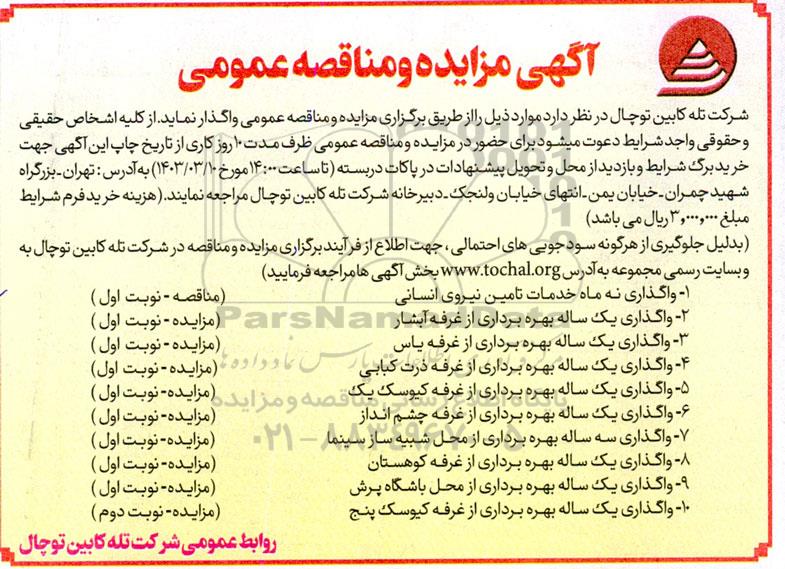 آگهی مزایده و مناقصه عمومی
شرکت تله کابین توچال در نظر دارد موارد ذیل را از طریق برگزاری مزایده و مناقصه عمومی واگذار نماید. از کلیه اشخاص حقیقی
و حقوقی واجد شرایط دعوت میشود برای حضور در مزایده و مناقصه عمومی ظرف مدت ۱۰ روز کاری از تاریخ چاپ این آگهی جهت
خرید برگ شرایط و بازدید از محل و تحویل پیشنهادات در پاکات دربسته (تا ساعت ۱۴:۰۰ مورخ ۱۴۰۳/۰۳/۱۰) به آدرس : تهران ـ بزرگراه
شهید چمران ـ خیابان یمن ـ انتهای خیابان ولنجک ـ دبیرخانه شرکت تله کابین توچال مراجعه نمایند. (هزینه خرید فرم شرایط
مبلغ ۳,۰۰۰,۰۰۰ ریال می باشد)
(بدلیل جلوگیری از هرگونه سودجویی های احتمالی ، جهت اطلاع از فرآیند برگزاری مزایده و مناقصه در شرکت تله کابین توچال به
وبسایت رسمی مجموعه به آدرس www.tochal.org بخش آگهی ها مراجعه فرمایید)
۱- واگذاری نه ماه خدمات تامین نیروی انسانی (مناقصه - نوبت اول )
۲- واگذاری یک ساله بهره برداری از غرفه آبشار (مزایده - نوبت اول )
۳- واگذاری یک ساله بهره برداری از غرفه یاس (مزایده - نوبت اول )
۴- واگذاری یک ساله بهره برداری از غرفه ذرت کبابی (مزایده - نوبت اول )
۵- واگذاری یک ساله بهره برداری از غرفه کیوسک یک (مزایده - نوبت اول )
۶- واگذاری یک ساله بهره برداری از غرفه چشم انداز (مزایده - نوبت اول )
۷- واگذاری سه ساله بهره برداری از محل شبیه ساز سینما (مزایده - نوبت اول )
۸- واگذاری یک ساله بهره برداری از غرفه کوهستان (مزایده - نوبت اول )
۹- واگذاری یک ساله بهره برداری از محل باشگاه پرش (مزایده - نوبت اول )
۱۰- واگذاری یک ساله بهره برداری از غرفه کیوسک پنج (مزایده - نوبت دوم )
روابط عمومی شرکت تله کابین توچال
ParsNamadData
پایگاه اطلاع رسانی مناقصه و مزایده
۰۲۱-۸۸۳۴۹۶۷۰-۵